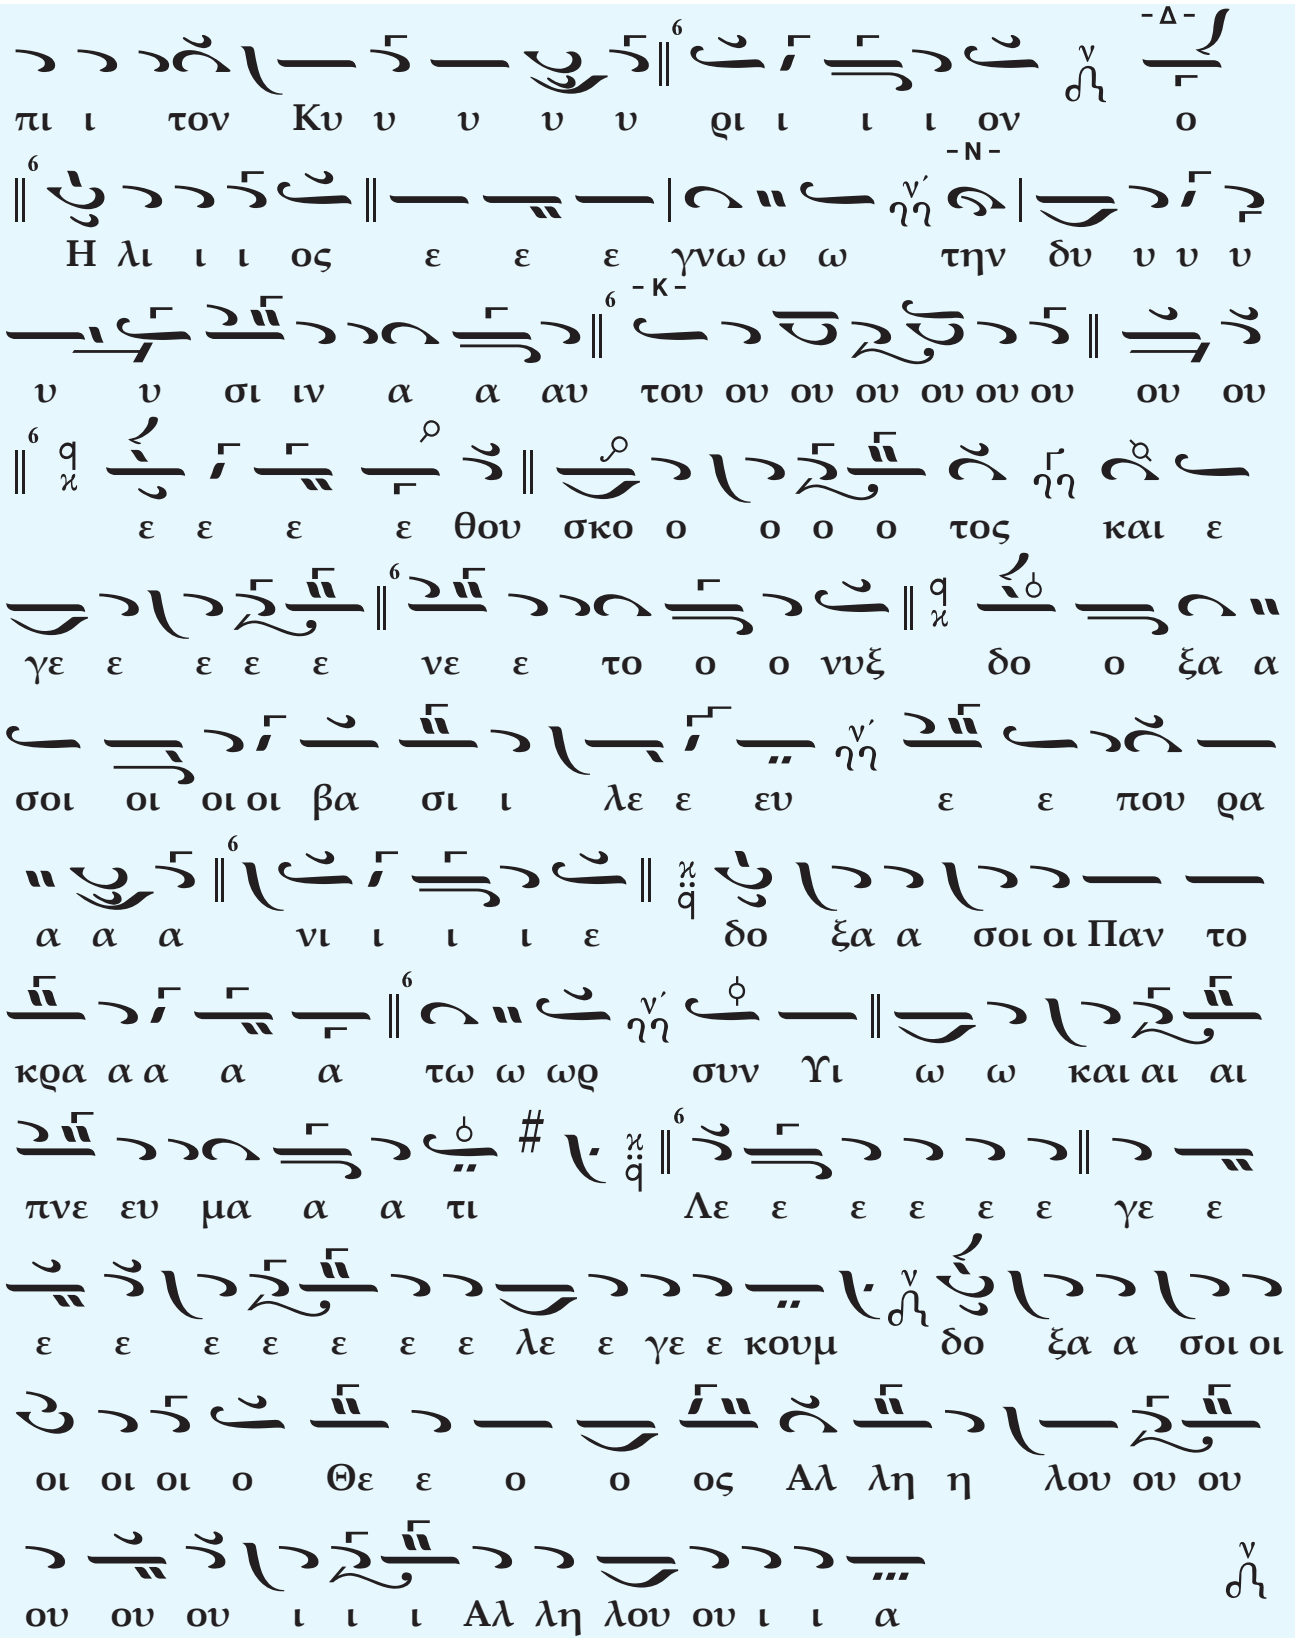 6 - Δ -
ν
πι ι τον Κυ υ υ υ υ ρι ι ι ι ον ο
6 - Ν -
ν´
Η λι ι ι ος ε ε ε γνω ω ω την δυ υ υ υ
6 - Κ -
υ υ σι ιν α α αυ του ου ου ου ου ου ου ου ου
6
ε ε ε ε θου σκο ο ο ο ο τος και ε
6
γε ε ε ε ε νε ε το ο ο νυξ δο ο ξα α
ν´
σοι οι οι οι βα σι ι λε ε ευ ε ε που ρα
6
α α α νι ι ι ι ε δο ξα α σοι οι Παν το
6
ν´
κρα α α α α τω ω ωρ συν Υι ω ω και αι αι
# 6
πνε ευ μα α α τι Λε ε ε ε ε ε γε ε
ν
ε ε ε ε ε ε ε λε ε γε ε κουμ δο ξα α σοι οι
οι οι οι ο Θε ε ο ο ος Αλ λη η λου ου ου
ν
ου ου ου ι ι ι Αλ λη λου ου ι ι α